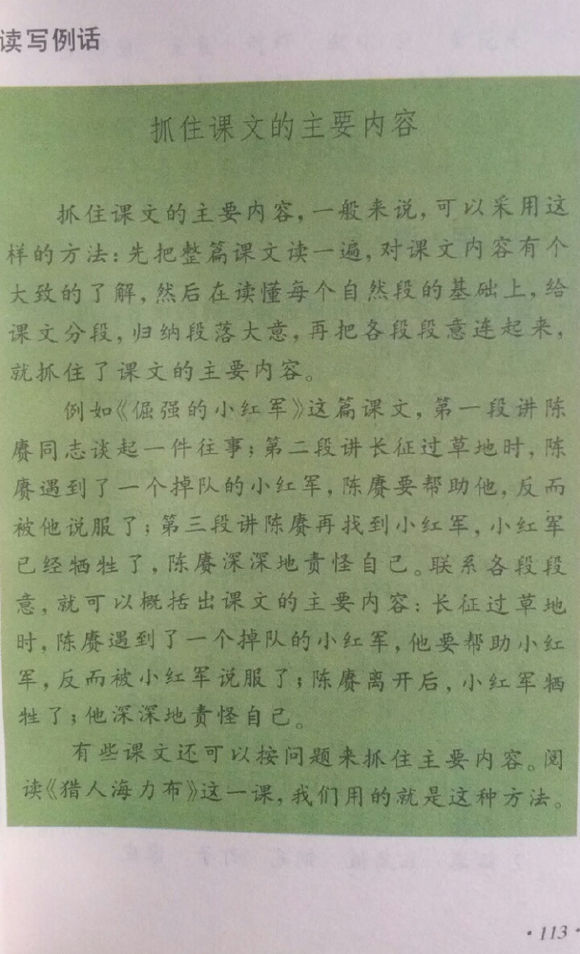 读写例话
抓住课文的主要内容
抓住课文的主要内容，一般来说，可以采用这
样的方法：先把整篇课文读一遍，对课文内容有个
大致的了解，然后在读懂每个自然段的基础上，给
课文分段，归纳段落大意，再把各段段意连起来，
就抓住了课文的主要内容。
例如《倔强的小红军》这篇课文，第一段讲陈
赓同志谈起一件往事；第二段讲长征过草地时，陈
赓遇到了一个掉队的小红军，陈赓要帮助他，反而
被他说服了；第三段讲陈赓再找到小红军，小红军
已经牺牲了，陈赓深深地责怪自己。联系各段段
意，就可以概括出课文的主要内容：长征过草地
时，陈赓遇到了一个掉队的小红军，他要帮助小红
军，反而被小红军说服了；陈赓离开后，小红军牺
牲了；他深深地责怪自己。
有些课文还可以按问题来抓住主要内容。阅
读《猎人海力布》这一课，我们用的就是这种方法。
·113·